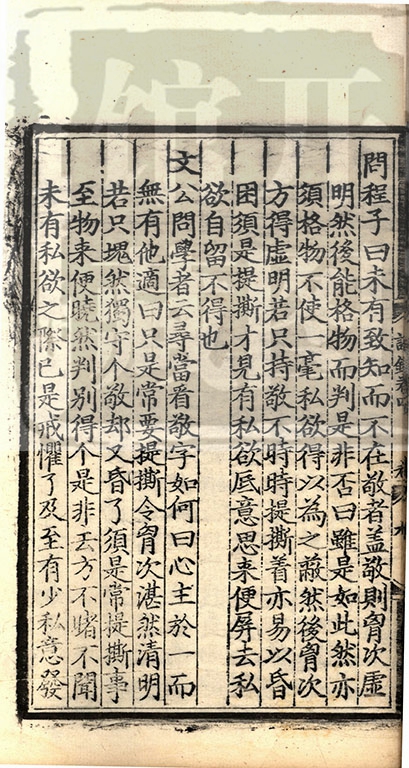 問程子曰未有致知而不在敬者盖敬則胷次虚
明然後能格物而判是非否曰雖是如此然亦
須格物不使一毫私欲得以為之蔽然後胷次
方得虚明若只持敬不時時提撕着亦易以昏
困須是提撕才見有私欲底意思来便屏去私
欲自留不得也
文公問學者云尋常看敬字如何曰心主於一而
無有他適曰只是常要提撕令胷次湛然清明
若只塊然獨守个敬却又昏了須是常提撕事
至物来便曉然判别得个是非去方不睹不聞
未有私欲之際已是戒懼了及至有少私意發